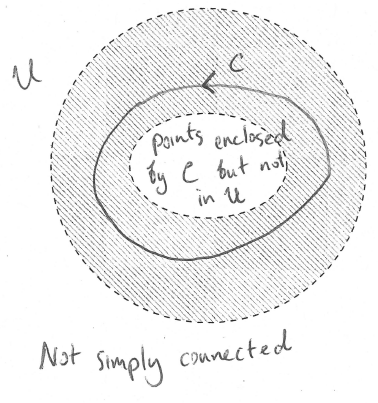 U
C
points enclosed
by C but not
in U
Not simply connected